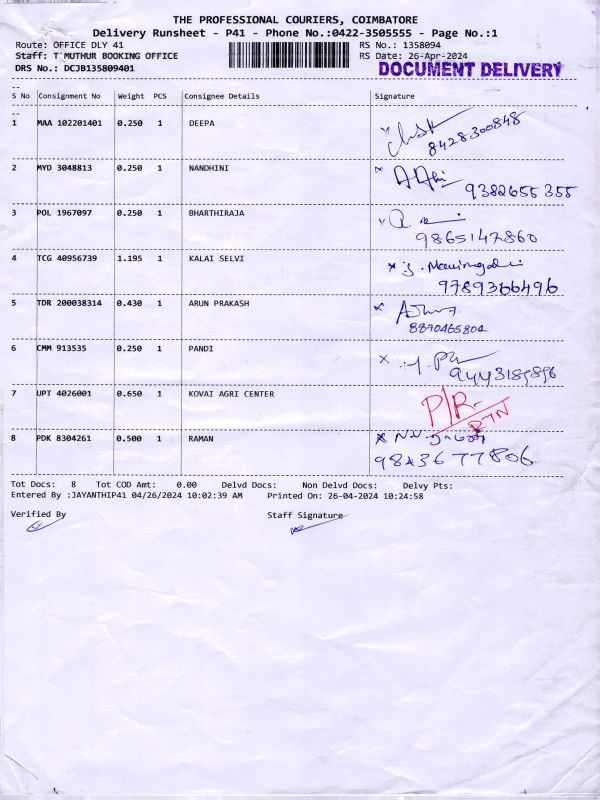 THE PROFESSIONAL COURIERS, COIMBATORE
Delivery Runsheet - P41 - Phone No.:0422-3505555 - Page No.:1
Route: OFFICE DLY 41 RS No.: 1358094
Staff: T MUTHUR BOOKING OFFICE RS Date: 26-Apr-2024
DRS No.: DCJB135809401 DOCUMENT DELIVERY
S No Consignment No Weight PCS Consignee Details Signature
1 MAA 102201401 0.250 1 DEEPA
8428300848
2 MYD 3048813 0.250 1 NANDHINI
9382655355
3 POL 1967097 0.250 1 BHARTHIRAJA
9865147860
4 TCG 40956739 1.195 1 KALAI SELVI
9789366496
5 TDR 200038314 0.430 1 ARUN PRAKASH
8870465804
6 CMM 913535 0.250 1 PANDI
9443189896
7 UPT 4026001 0.650 1 KOVAI AGRI CENTER P/R
RTN
8 PDK 8304261 0.500 1 RAMAN
9843677806
Tot Docs: 8 Tot COD Amt: 0.00 Delvd Docs: Non Delvd Docs: Delvy Pts:
Entered By :JAYANTHIP41 04/26/2024 10:02:39 AM Printed On: 26-04-2024 10:24:58
Verified By Staff Signature